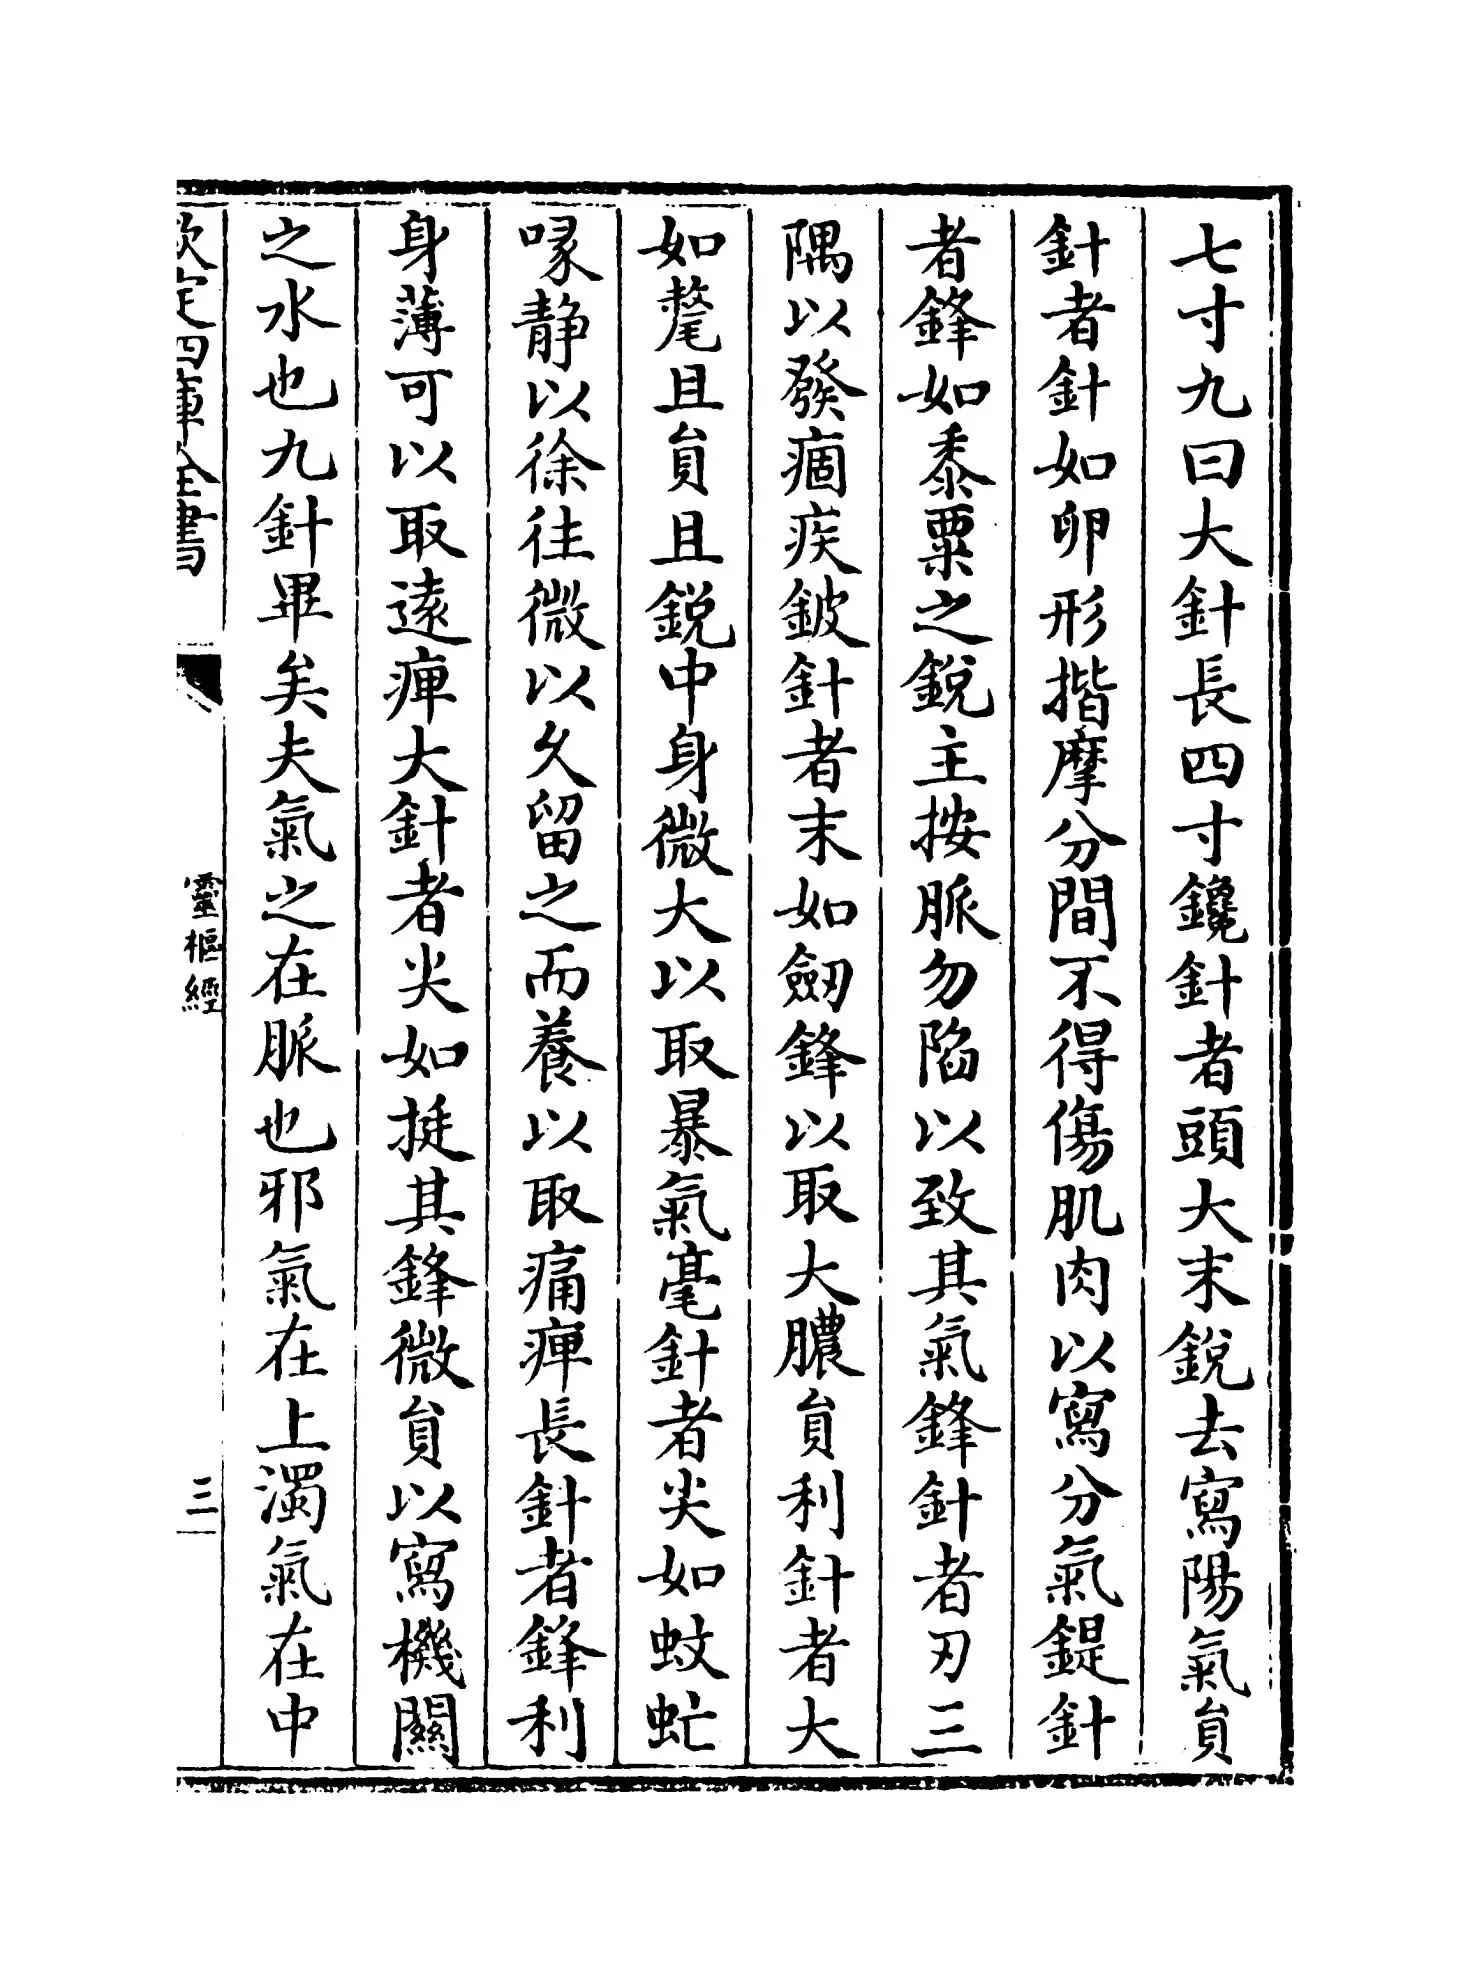 七寸九曰大針長四寸鑱針者頭大末銳去寫陽氣員
針者針如卵形揩摩分間不得傷肌肉以寫分氣鍉針
者鋒如黍粟之銳主按脈勿陷以致其氣鋒針者刃三
隅以發痼疾鈹針者末如劔鋒以取大膿員利針者大
如氂且員且銳中身微大以取暴氣毫針者尖如蚊虻
喙静以徐往微以久留之而養以取痛痺長針者鋒利
身薄可以取遠痺大針者尖如挺其鋒微員以寫機關
之水也九針畢矣夫氣之在脈也邪氣在上濁氣在中
欽定四庫全書
靈樞經
三